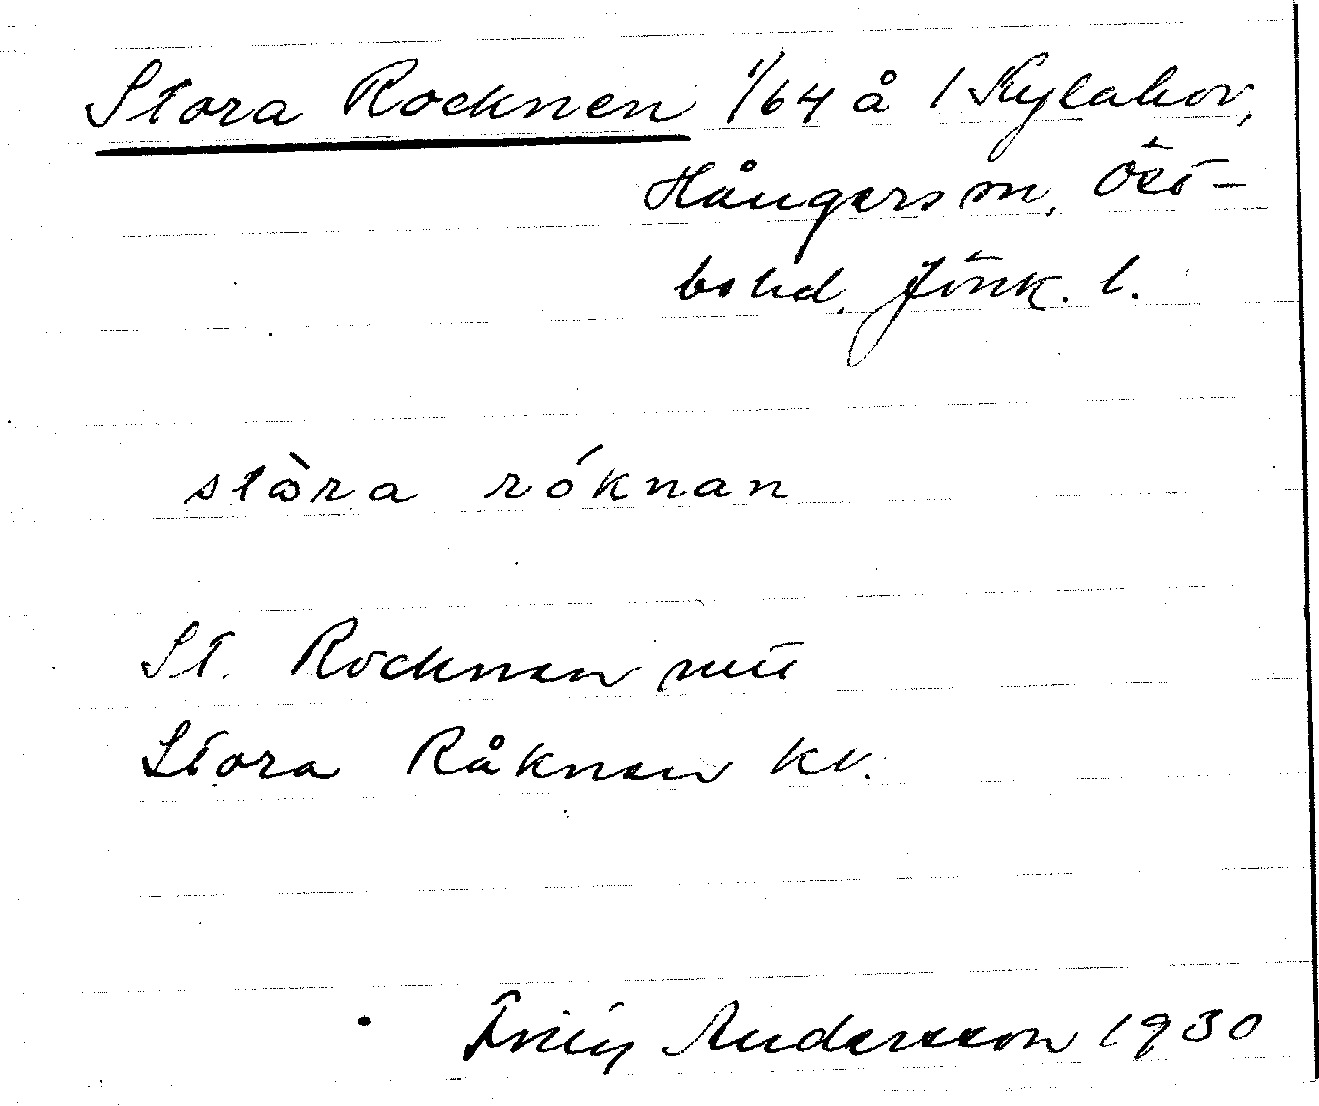 Stora Rocknen 1/64 å 1 Kylahov,
Hångers sn, Öst-
bo hd. Jönk. l.
stòra róknan
St. Rocknen
Stora Råknen kv.
Andersson 1930